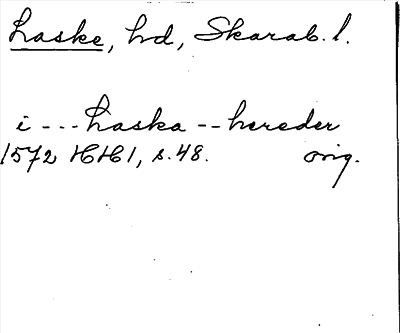 Laske, hd, Skarab. l.
i --- Laska -- hereder
1572 HH1, s. 48. orig.